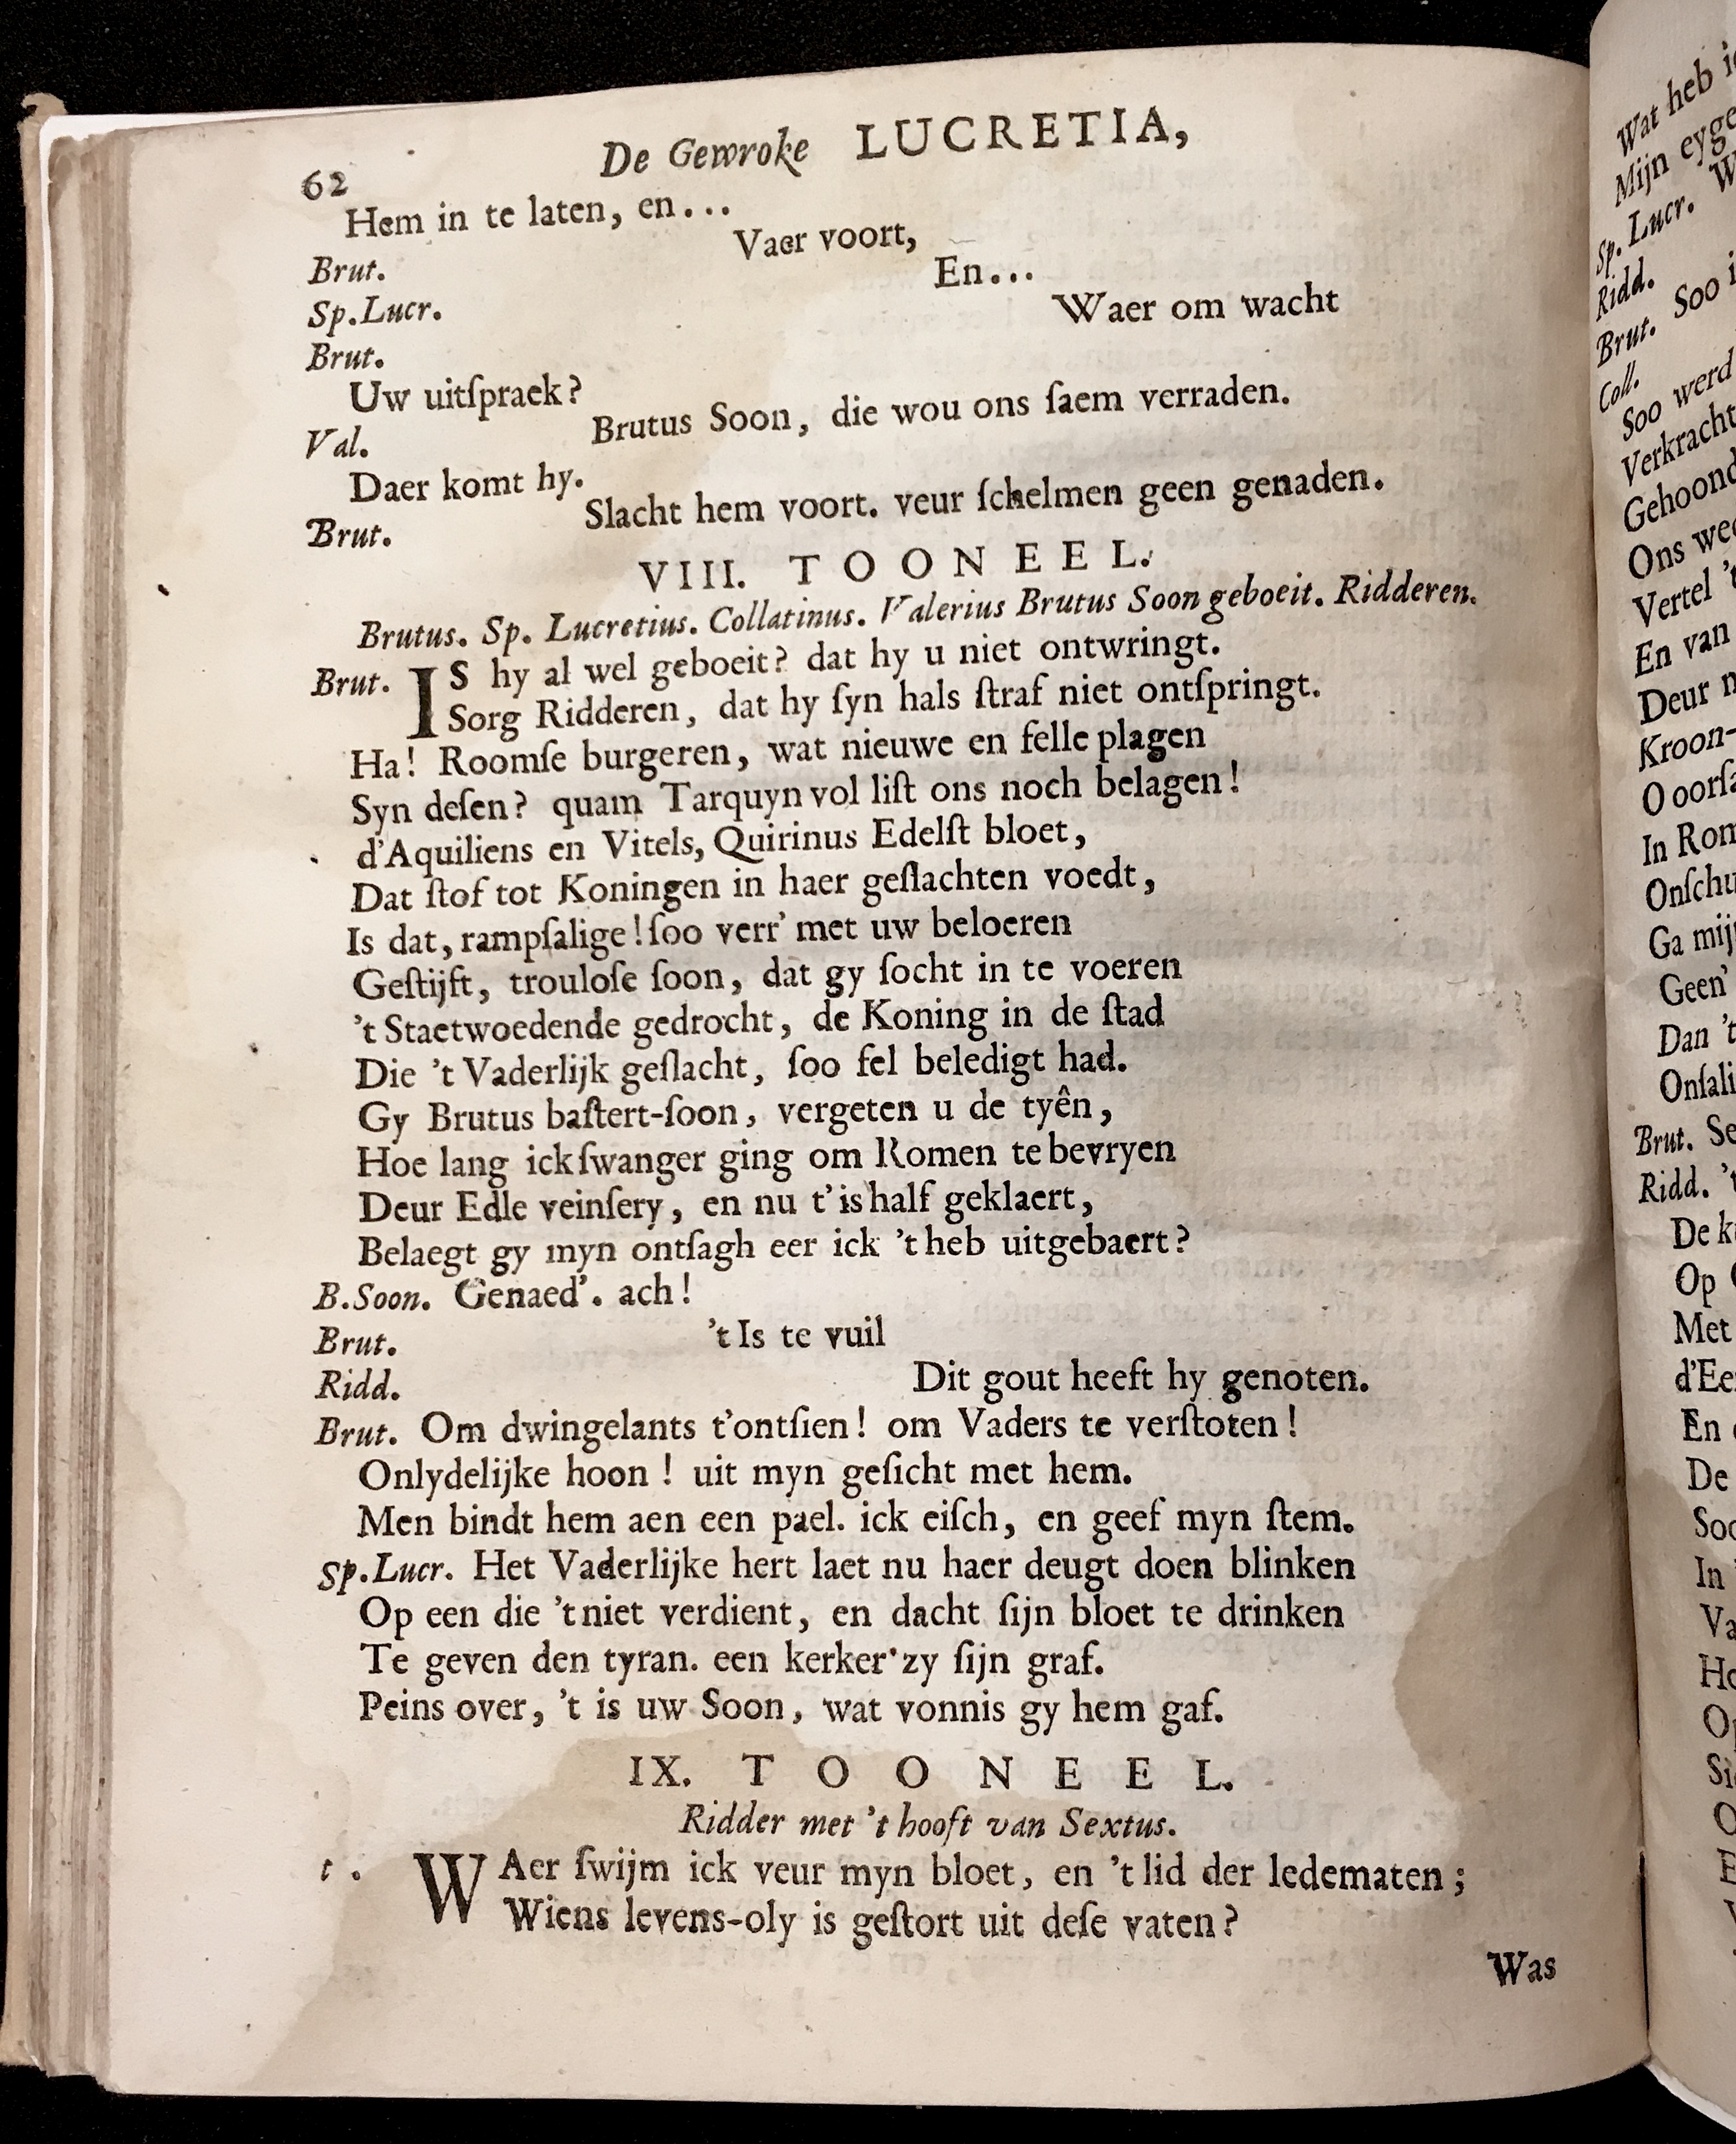 62 De Gewroke LUCRETIA,
Hem in te laten, en...
Brut. Vaer voort,
Sp.Lucr. En...
Brut. Waer om wacht
Uw uitſpraek?
Val. Brutus Soon, die wou ons ſaem verraden.
Daer komt hy.
Brut. Slacht hem voort. veur ſchelmen geen genaden.
VIII. TOONEEL.
Brutus. Sp. Lucretius. Collatinus. Valerius Brutus Soon geboeit. Ridderen.
Brut. IS hy al wel geboeit? dat hy u niet ontwringt.
Sorg Ridderen, dat hy ſyn hals ſtraf niet ontſpringt.
Ha! Roomſe burgeren, wat nieuwe en felle plagen
Syn deſen? quam Tarquyn vol liſt ons noch belagen!
d'Aquiliens en Vitels, Quirinus Edelſt bloet,
Dat ſtof tot Koningen in haer geſlachten voedt,
Is dat, rampſalige! ſoo verr' met uw beloeren
Geſtijft, trouloſe ſoon, dat gy ſocht in te voeren
't Staetwoedende gedrocht, de Koning in de ſtad
Die 't Vaderlijk geſlacht, ſoo fel beledigt had.
Gy Brutus baſtert-ſoon, vergeten u de tyên,
Hoe lang ick ſwanger ging om Romen te bevryen
Deur Edle veinſery, en nu t'is half geklaert,
Belaegt gy myn ontſagh eer ick 't heb uitgebaert?
B.Soon. Genaed'. ach!
Brut. 't Is te vuil
Ridd. Dit gout heeft hy genoten.
Brut. Om dwingelants t'ontſien! om Vaders te verſtoten!
Onlydelijke hoon! uit myn geſicht met hem.
Men bindt hem aen een pael. ick eiſch, en geef myn ſtem.
Sp.Lucr. Het Vaderlijke hert laet nu haer deugt doen blinken
Op een die 't niet verdient, en dacht ſijn bloet te drinken
Te geven den tyran. een kerker' zy ſijn graf.
Peins over, 't is uw Soon, wat vonnis gy hem gaf.
IX. TOONEEL.
Ridder met 't hooft van Sextus.
t. WAer ſwijm ick veur myn bloet, en 't lid der ledematen;
Wiens levens-oly is geſtort uit deſe vaten?
Was
Wat heb
Mijn
Sp. Lucr.
Ridd.
Brut. Soo
Coll.
Soo werd
Verkracht
Gehoond
Ons
Vertel
En van
Deur
Kroon-
O
In
Ga
Geen'
Dan 't
Brut.
Ridd.
De
Op
Met
En
De
In